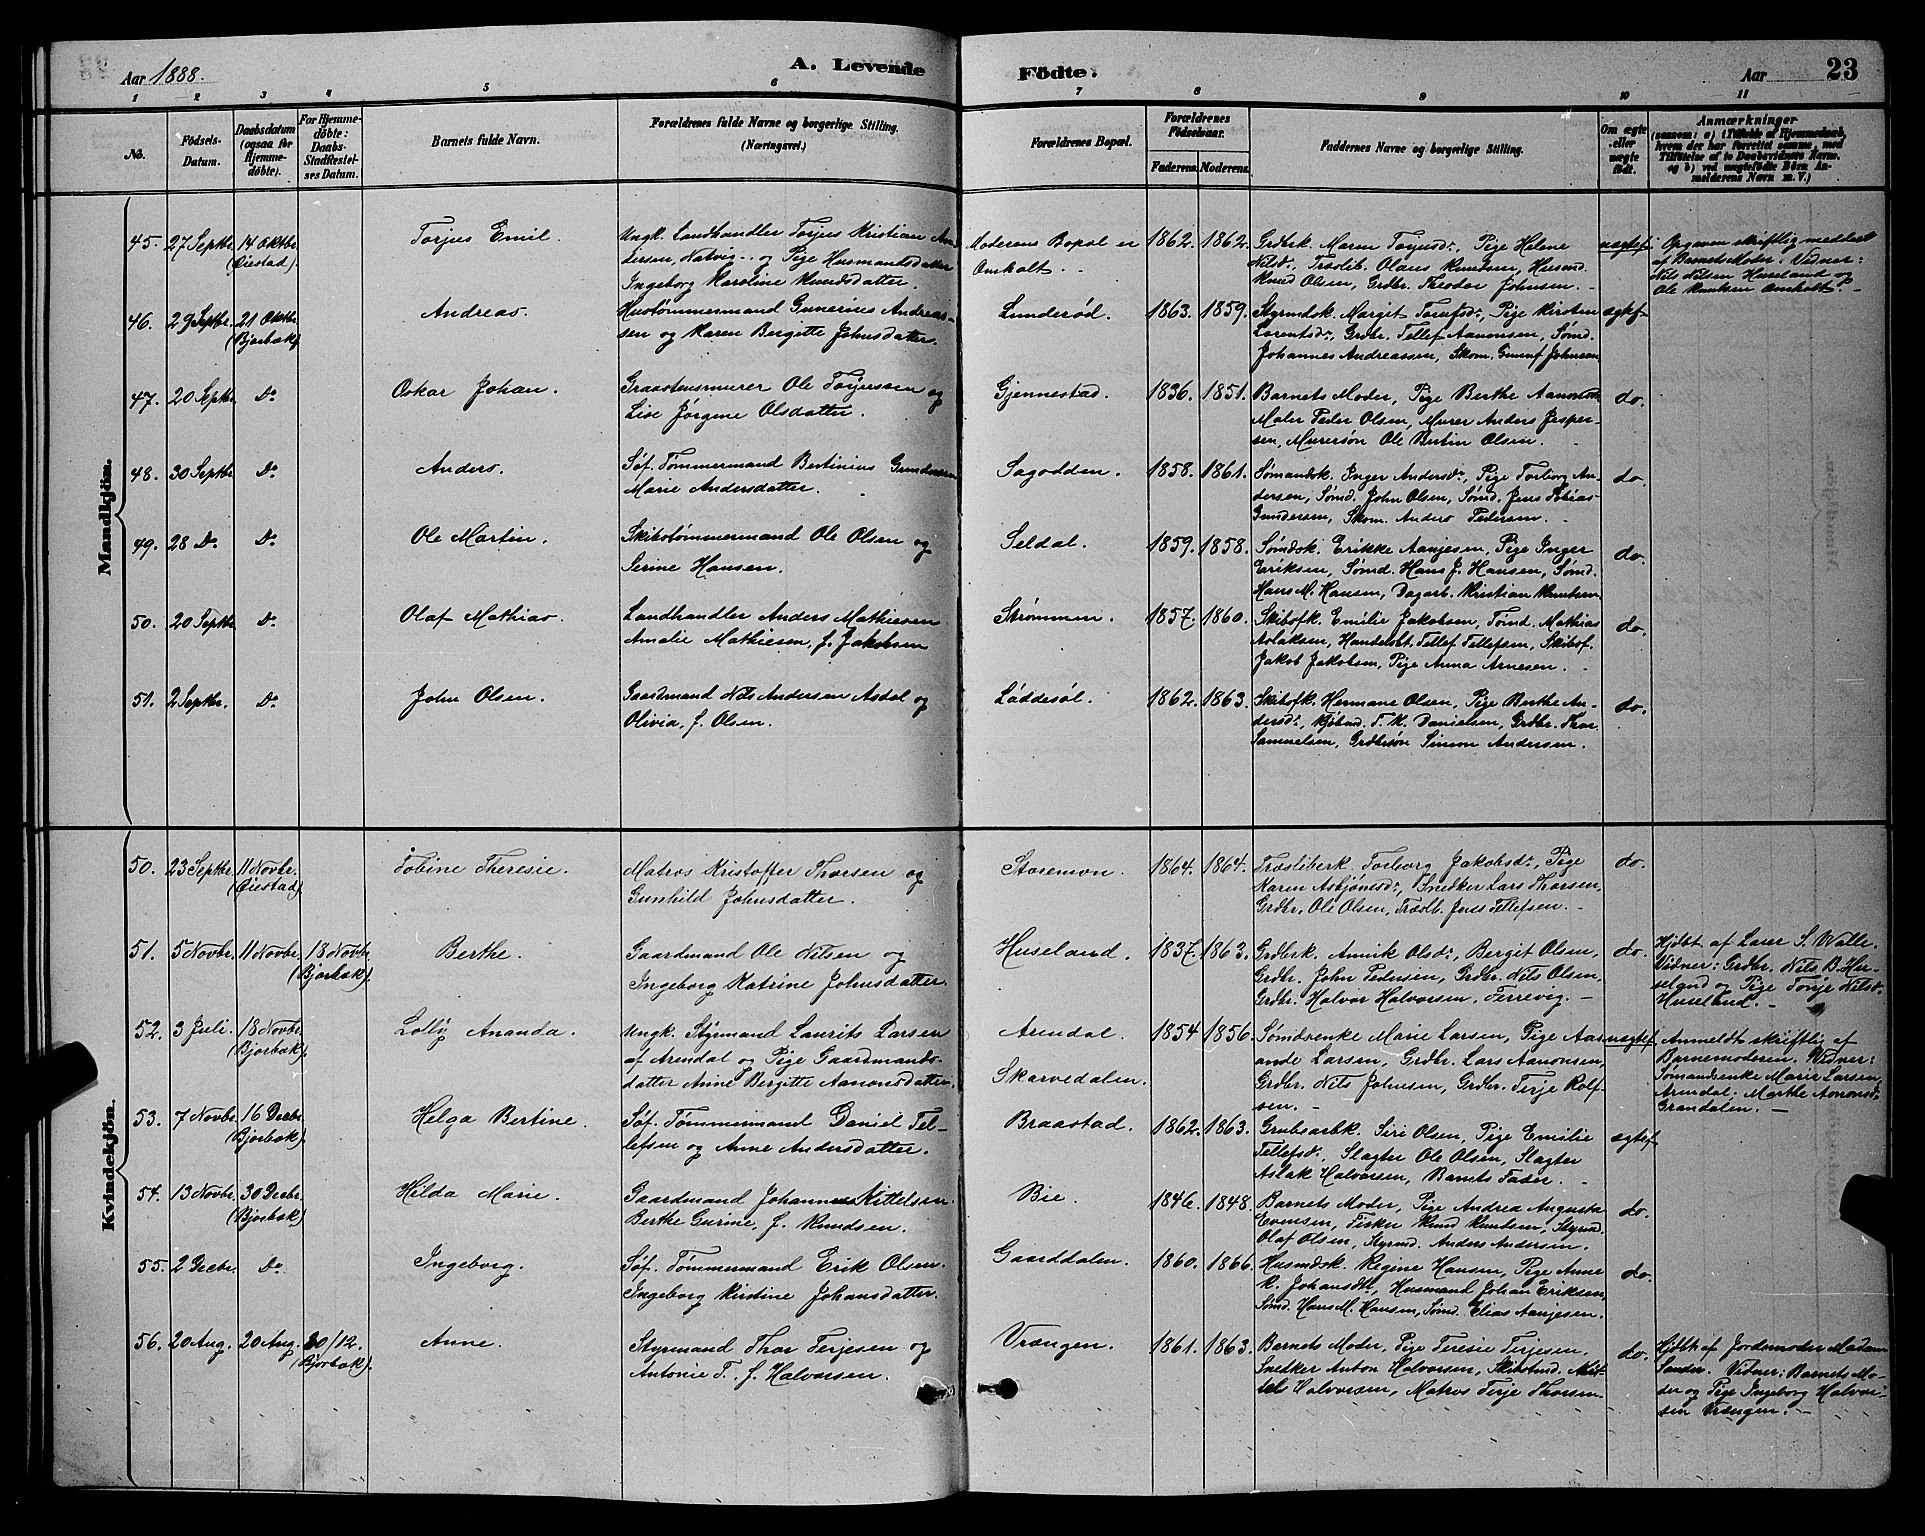 Aar 1888.
A. Levende
Födte.
Aar
23
1 2 3 4 5 6 7 8 9 10 11
No.
Födsels-Datum.
Daabsdatum (ogsaa for Hjemme-døbte).
For Hjemme-døbte: Daabs-Stadfæstel-ses Datum.
Barnets fulde Navn.
Forældrenes fulde Navne og borgerlige Stilling. (Næringsvei.)
Forældrenes Bopæl.
Forældrenes Födselsaar.
Faderens. Moderens.
Faddernes Navne og borgerlige Stilling.
Om ægte eller uægte født.
Anmærkninger
(saasom: a) i Tilfælde af Hjemmedaab,
hvem der har forrettet samme, med
Tilföielse af to Daabsvidners Navne,
og b) ved uægtefödte Börn An-
melderens Navn m. V.)
Mandkjön.
45. 27 Septbr. 14 Oktbr. (Øiestad). Torjus Emil.
Ungk. Landhandler Torjus Kristian An-
dersen, Natvig - og Pige Husmandsdatter
Ingeborg Karoline Knudsdatter.
Moderens Bopæl er
Omholt.
1862. 1862.
Grdbrk. Maren Torjusdr., Pige Helene
Nilsdr., Træslib. Olaus Knudsen, Husmd.
Knud Olsen, Grdbr. Theodor Johnsen.
uægtef.
Opgaven skriftlig meddelt
af Barnets Moder. Vidner:
Nils Nilsen Huseland og
Ole Knutsen Omholt.
46. 29 Septbr. 21 Oktbr. (Bjorbæk). Andreas.
Hustømmermand Gunerius Andreas-
sen og Karen Bergitte Johnsdatter.
Lunderød.
1863. 1859.
Styrmdsk. Margit Torefsdr., Pige Kirsten
Larentsdr., Grdbr. Tellef Aanonsen, Sømd.
Johannes Andreassen, Skom. Gunuf Johnsen
ægtef
47. 20 Septbr. Do Oskar Johan.
Graastensmurer Ole Torjussen og
Lise Jørgine Olsdatter.
Gjennestad.
1836. 1851.
Barnets Moder, Pige Berthe Aanonsdr.
Maler Peder Olsen, Murer Anders Jesper-
sen, Murersøn Ole Bertin Olsen.
do.
48. 30 Septbr. Do Anders.
Søf. Tømmermand Bertinius Gundersen
Marie Andersdatter.
Sagodden.
1858. 1861.
Sømandsk. Inger Andersdr., Pige Torborg An-
dersen, Sømd. John Olsen, Sømd. Jens Tobias
Gundersen, Skom. Anders Pedersen.
do.
49. 28 Do. Do Ole Martin.
Skibstømmermand Ole Olsen og
Serine Hansen.
Seldal.
1859. 1858.
Sømdsk. Erikke Aanjesen, Pige Inger
Eriksen, Sømd. Hans J. Hansen, Sømd.
Hans M. Hansen, Dagarb. Kristian Knutsen
do.
50. 20 Septbr. Do Olaf Mathias.
Landhandler Anders Mathiesen
Amalie Mathiesen, f. Jakobsen
Strømmen.
1857. 1860.
Skibsfk. Emilie Jakobsen, Tømd. Mathias
Aslaksen, Handelsbt. Tellef Tellefsen, Skibsf.
Jakob Jakobsen, Pige Anna Arnesen.
do.
51. 2 Septbr. Do John Olsen.
Gaardmand Nils Andersen Asdal og
Olivia, f. Olsen.
Løddesøl.
1862. 1863.
Skibsfk. Hermane Olsen, Pige Berthe An-
dersdr., Kjøbmd. T. K. Danielsen, Grdbr. Thor
Samuelsen, Grdbrsøn Simon Andersen.
do.
Kvindekjön.
50. 23 Septbr. 11 Novbr. (Øiestad). Tobine Theresie.
Matros Kristoffer Thorsen og
Gunhild Johnsdatter.
Storemon.
1864. 1864.
Træsliberk. Torborg Jakobsdr., Pige
Karen Asbjønsdr., Snedker Lars Thorsen,
Grdbr. Ole Olsen, Træslb. Jens Tellefsen.
do.
51. 5 Novbr. 11 Novbr. 18 Novbr. (Bjorbæk). Berthe.
Gaardmand Ole Nilsen og
Ingeborg Katrine Johnsdatter.
Huseland.
1837. 1863.
Grdbrk. Annik Olsdr., Bergit Olsen,
Grdbr. John Pedersen, Grdbr. Nils Olsen,
Grdbr. Halvor Halvorsen, Ferrevig.
do.
Hjdbt. af Lærer S. Walle.
Vidner: Grdbr. Nils B. Hu-
seland og Pige Tonje Nilsdr.
Huseland.
52. 3 Juli. 18 Novbr. (Bjorbæk). Lolly Ananda.
Ungk. Styrmand Laurits Larsen
af Arendal og Pige Gaardmands-
datter Anne Bergitte Aanonsdatter.
Arendal.
Skarvedalen.
1854 1856.
Sømdsenke Marie Larsen, Pige Aas-
ande Larsen, Grdbr. Lars Aanonsen,
Grdbr. Nils Johnsen, Grdbr. Terje Rolf-
sen.
uægtef.
Anmeldt skriftlig af
Barnemoderen. Vidner:
Sømandsenke Marie Larsen,
Arendal; Marthe Aanonsdr.
Grandalen.
53. 7 Novbr. 16 Decbr. (Bjorbæk). Helga Bertine.
Søf. Tømmermand Daniel Tel-
lefsen og Anne Andersdatter.
Braastad.
1862. 1863.
Grubearbk. Siri Olsen, Pige Emilie
Tellefsdr., Slagter Ole Olsen, Slagter
Aslak Halvorsen, Barnets Fader.
ægtef
54. 13 Novbr. 30 Decbr. (Bjorbæk). Hilda Marie.
Gaardmand Johannes Kittelsen.
Berthe Gurine, f. Knudsen.
Bie.
1846. 1848.
Barnets Moder, Pige Andrea Augusta
Evensen, Fisker Knud Knutsen, Styrmd.
Olaf Olsen, Styrmd. Anders Andersen.
do.
55. 2 Decbr. Do Ingeborg.
Søf. Tømmermand Erik Olsen.
Ingeborg Kirstine Johansdatter.
Gaarddalen.
1860. 1866.
Husmdsk. Regine Hansen, Pige Anne
K. Johansdtr, Husmand Johan Eriksen,
Sømd. Hans M. Hansen, Sømd. Elias Aanjesen.
do.
56. 20 Aug. 20 Aug. 30/12. (Bjorbæk). Anne.
Styrmand Thor Terjesen og
Antonie T. f. Halvorsen.
Vrængen.
1861. 1863.
Barnets Moder, Pige Teresie Terjesen,
Snedker Anton Halvorsen, Skibstmd. Kit-
tel Halvorsen, Matros Terje Thorsen.
do.
Hjdbt. af Jordemoder Madam
Sander. Vidner: Barnets Mo-
der og Pige Ingeborg Halvor-
sen Vrængen.